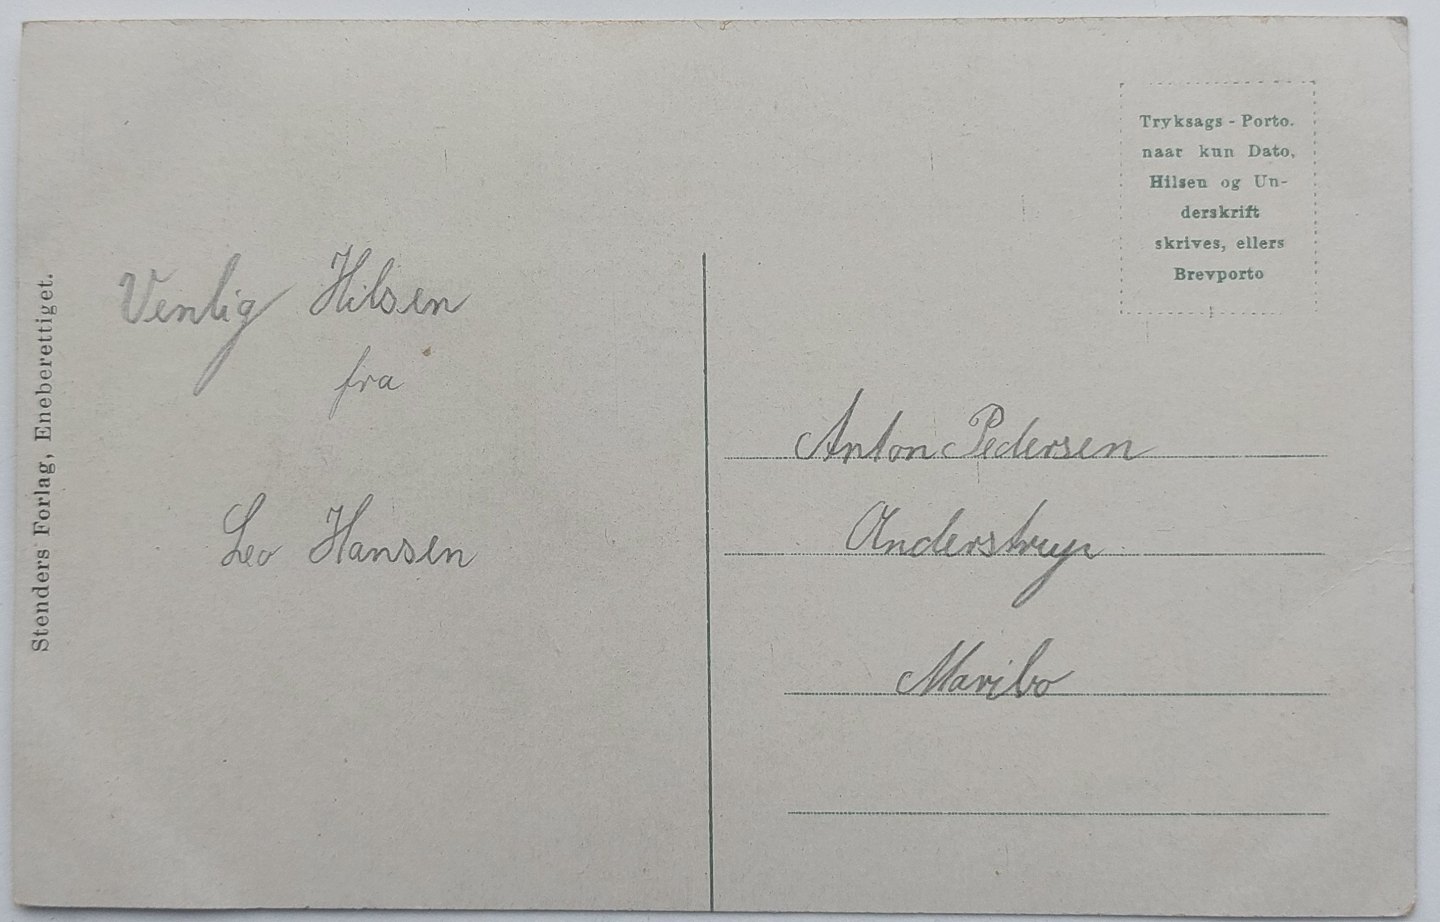 Stenders Forlag, Eneberettiget.
Tryksags - Porto.
naar kun Dato,
Hilsen og Un-
derskrift
skrives, ellers
Brevporto
Venlig Hilsen
fra
Leo Hansen
Anton Pedersen
Anderstrup
Maribo